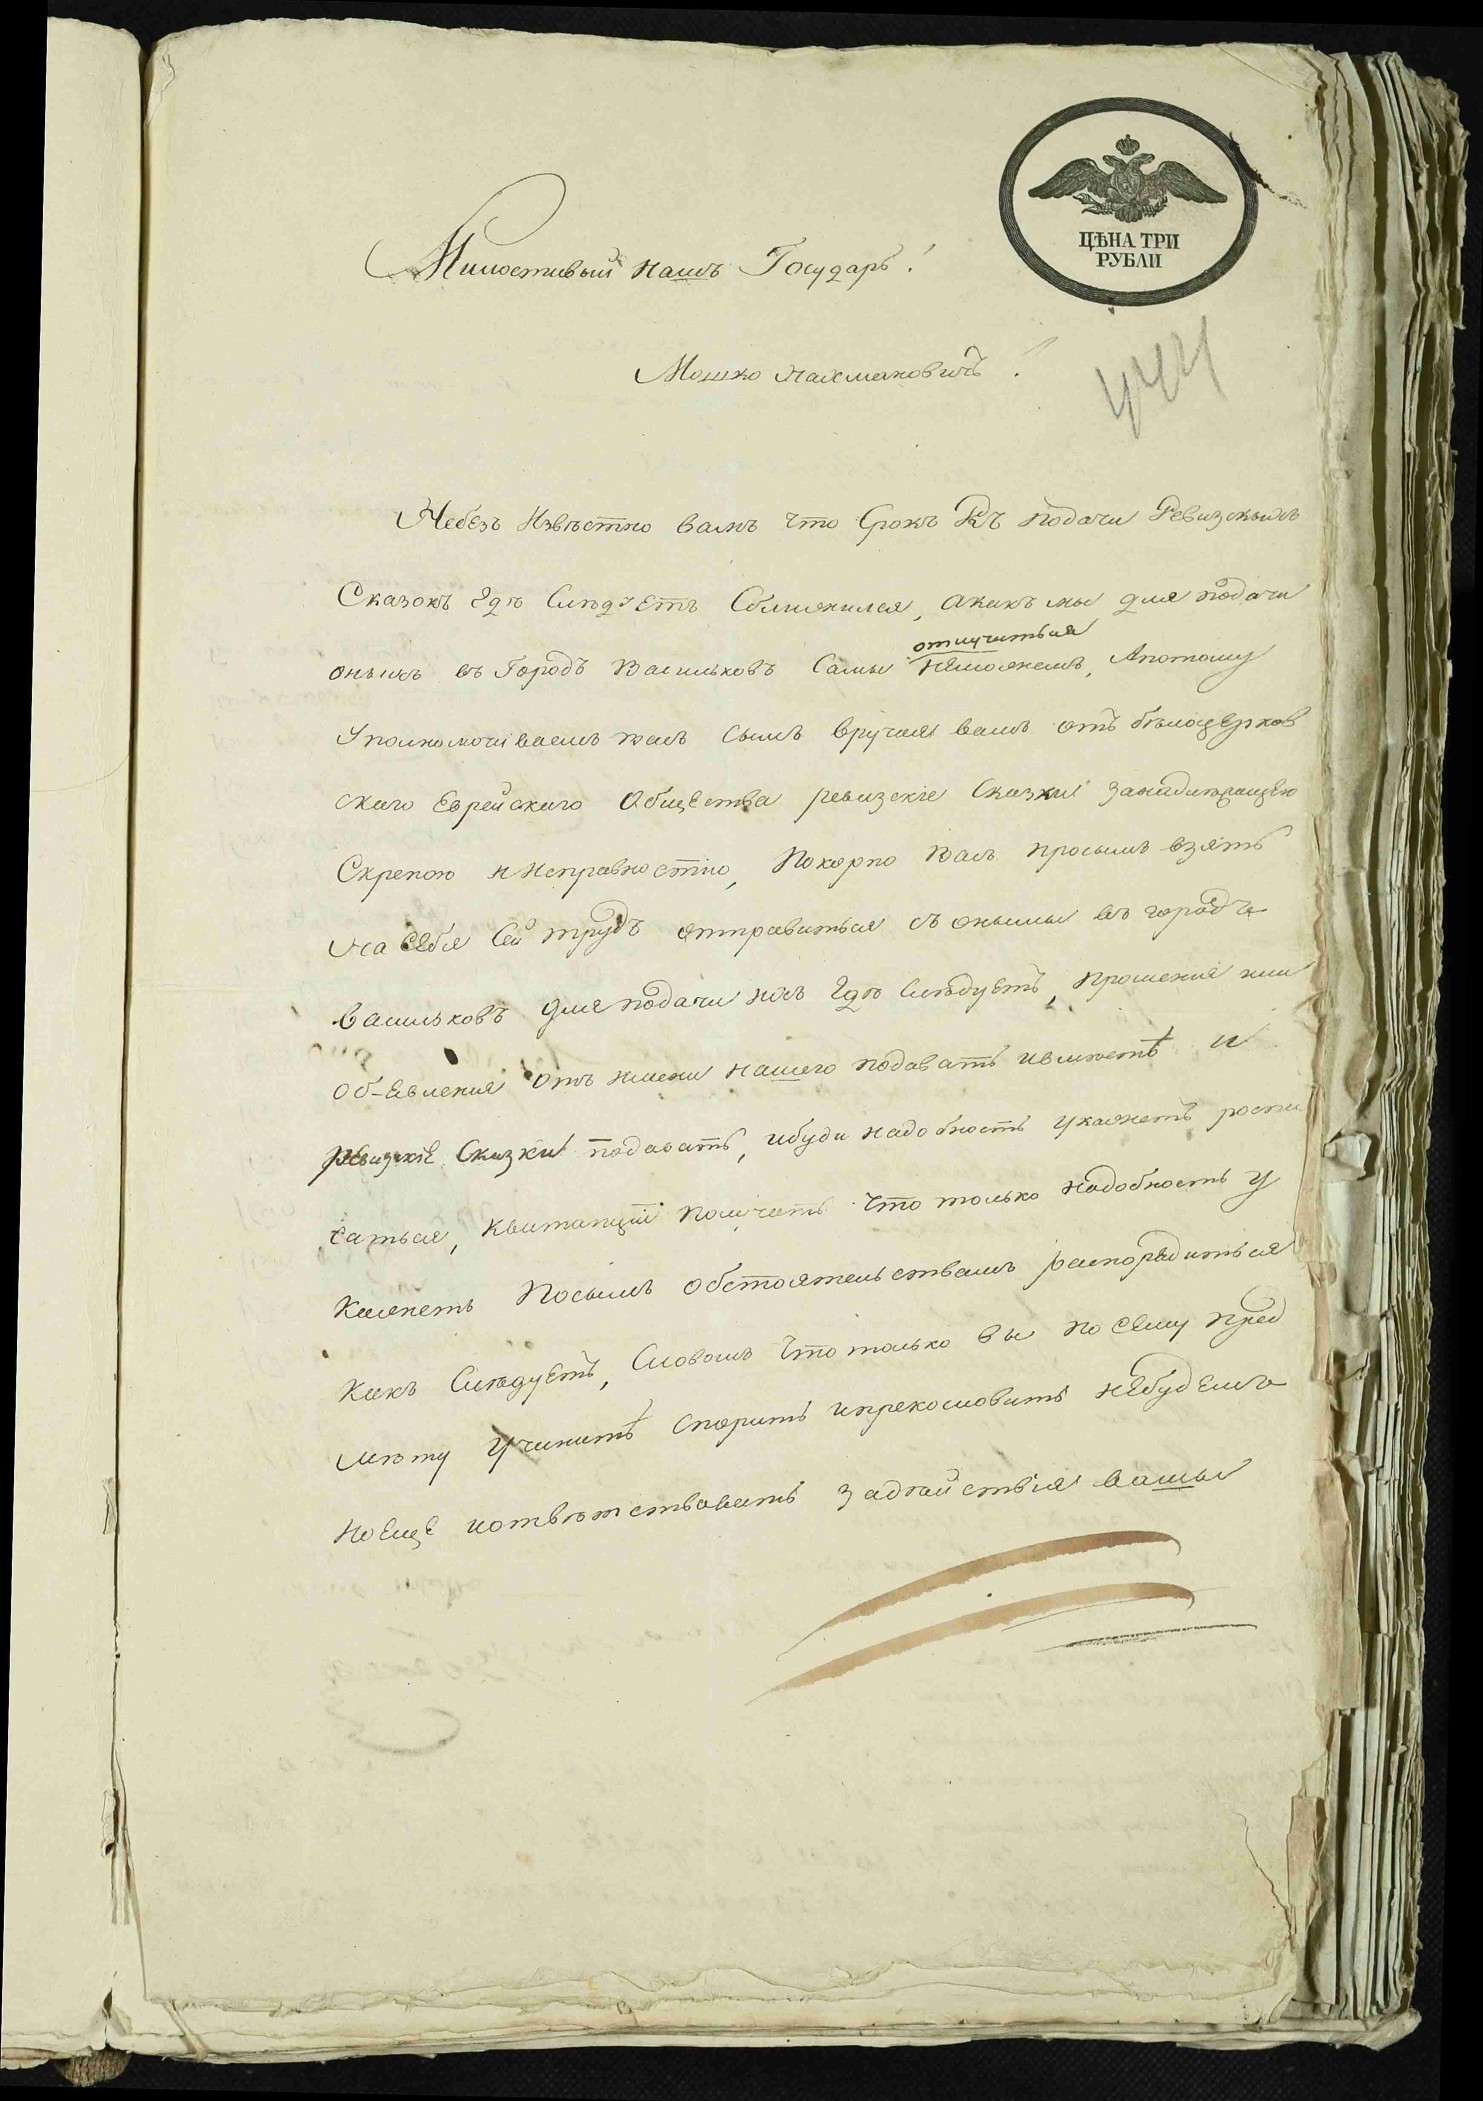 ЦѢНА ТРИ
РУБЛИ
Милостивый нашъ Государь!
Мошко Нахмановичъ!
Небезъ Извѣстно вамъ что Срокъ Къ подачи Ревизскихъ
Сказокъ гдѣ Слѣдуетъ Сближился, акакъ мы для подачи
отлучиться
оныхъ въ Городъ Васильковъ Самы неможемъ, Апотому
уполномочиваемъ васъ сымъ вручая вамъ отъ бѣлоцерков
скаго Еврейскаго Общества ревизскіе Сказки занадлежащею
Скрепою и Исправностію, Покорно Васъ просымъ взять
На себя Сей трудъ отправиться съ оными въ городъ
васильковъ для подачи ихъ гдѣ Слѣдуетъ, прошенія или
об-Явленія отъ имени нашего подавать и
ревизскіе Сказки подавать, ибуди надобность укажетъ роспи
саться, квитанціи получать что только надобность у
кажетъ Посымъ обстоятельствамъ распорядиться
какъ Слѣдуетъ, Словомъ что только вы по сему пред
мѣту учините спорить ипрекословить небудемъ
но еще иотвѣтствовать задѣйствія вашы